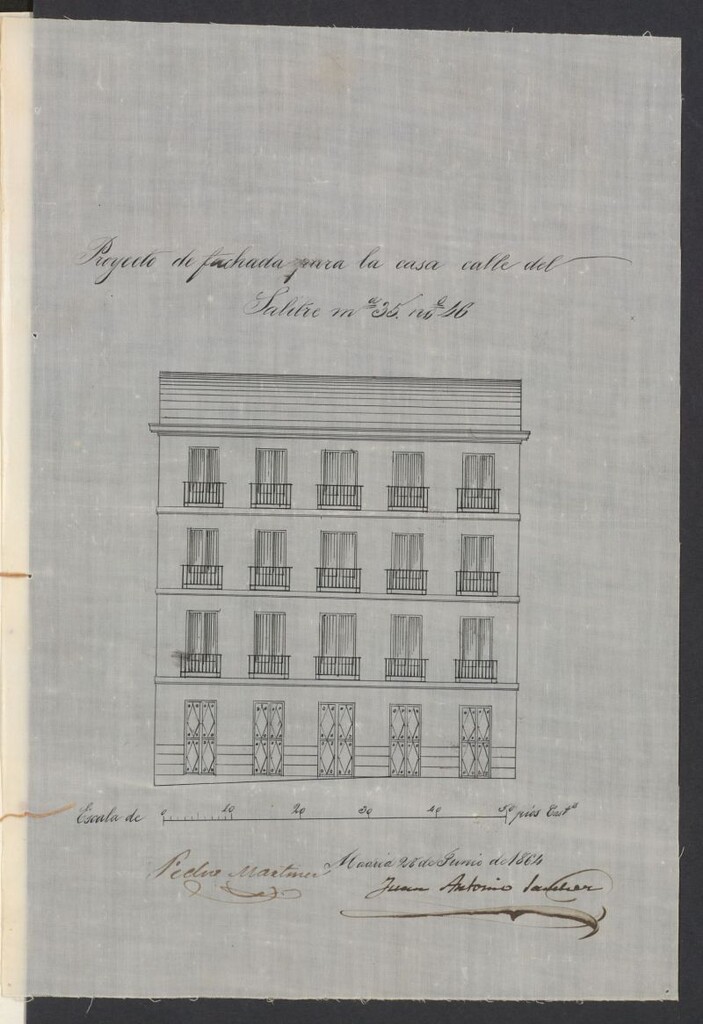 Proyecto de fachada para la casa calle del
Salitre mª 35. nº 46
Escala de 0 10 20 30 40 50 pies Castˢ
Madrid 28 de Junio de 1864
Pedro Martinez
Juan Antonio Sanchez